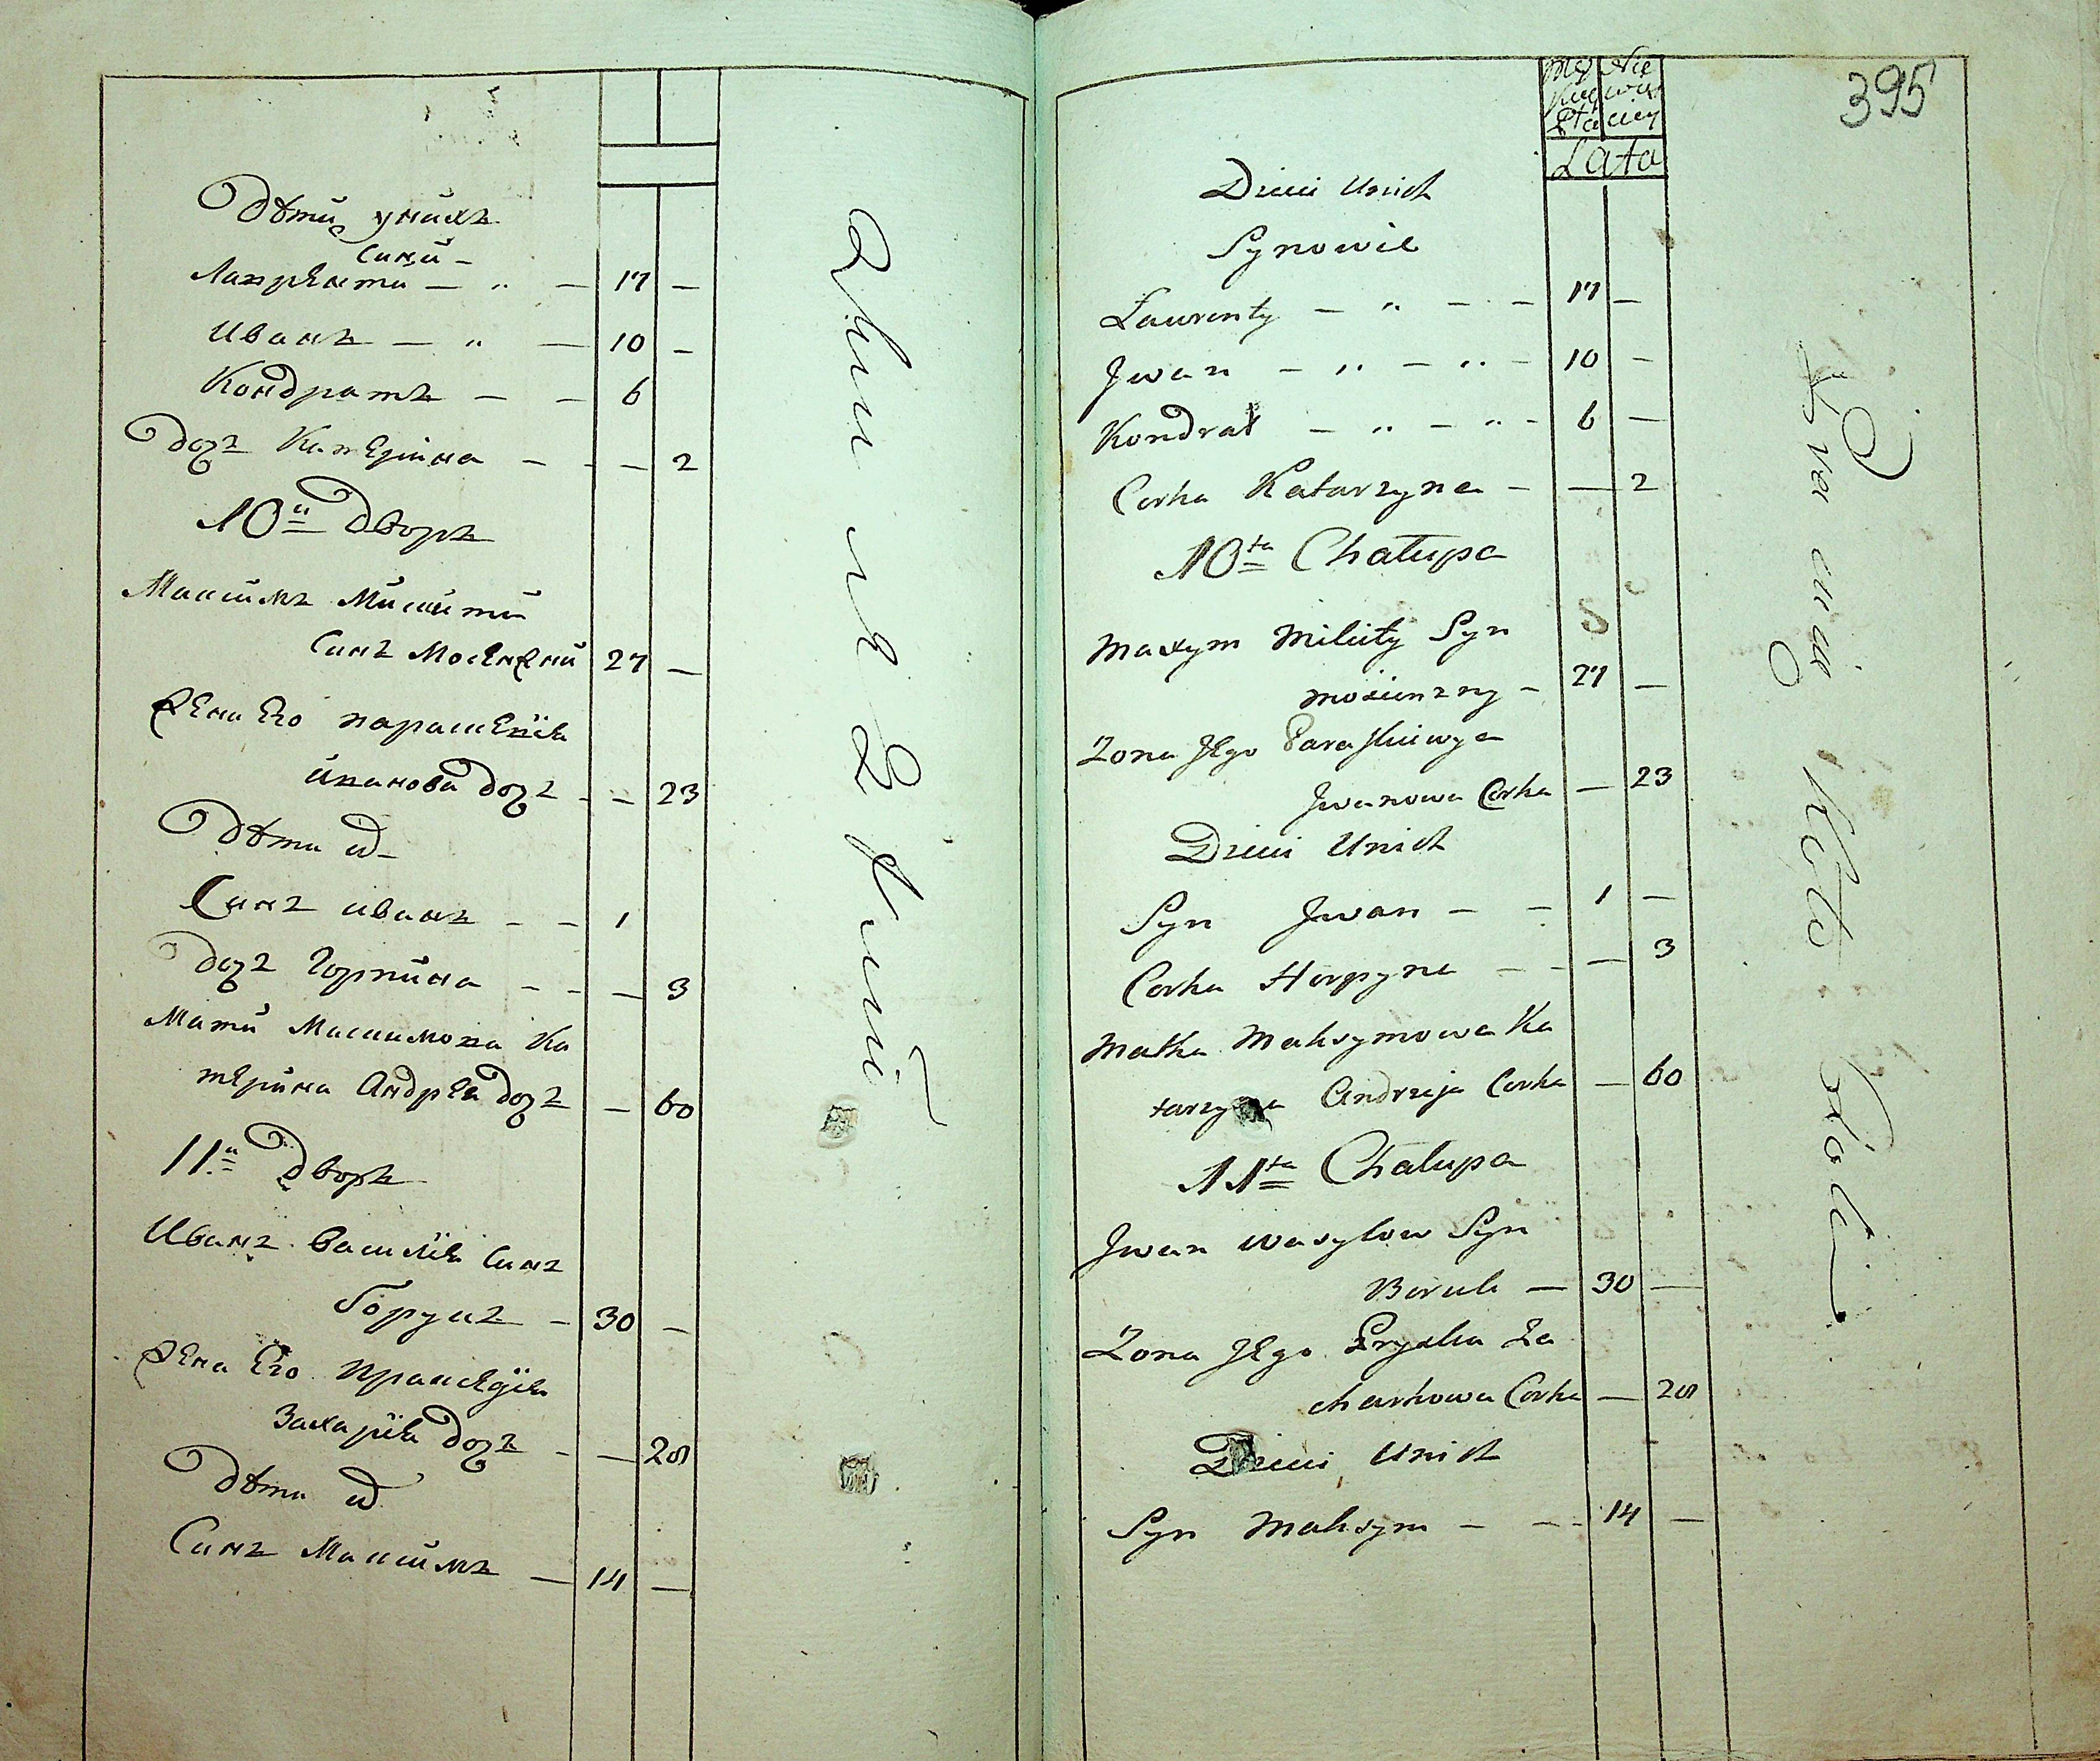 Дѣти унихъ
Сини
Лаврѣнти — „ — 17 —
Иванъ — „ — 10 —
Кондратъ — — 6
доч Катерина — — — 2
10й дворъ
Максимъ Микити
Синъ 27 —
жена Его Параскевія
Иванова доч — — 23
Дѣти и
Синъ Иванъ — — 1
доч Горпина — — — 3
Мати Максимова Ка
терина Андреа доч — 60
11й дворъ
Иванъ Василія Синъ
30 —
жена Его
Захарія доч — — 28
Дѣти и
Синъ Максимъ — 14 —
395
Męz Nie
kiey wia
Płci ciey
Lata
Dzieci Unich
Synowie
Ławrenty — „ — — 17 —
Jwan — „ — „ — 10 —
Kondrat — „ — „ — 6 —
Corka Katarzyna — — 2
10ta Chałupa
Maxym Mikity Syn
27 —
Zona Jego Paraskiewya
Jwanowa Corka — 23
Dzieci Unich
Syn Jwan — — 1 —
Corka Horpyna — — — 3
Matka Maksymowa Ka
tarzyna Andrzeja Corka — 60
11ta Chalupa
Jwan Wasylow Syn
30 —
Zona Jego Pryska Za
charkowa Corka — 28
Dzieci Unich
Syn Maksym — — 14 —